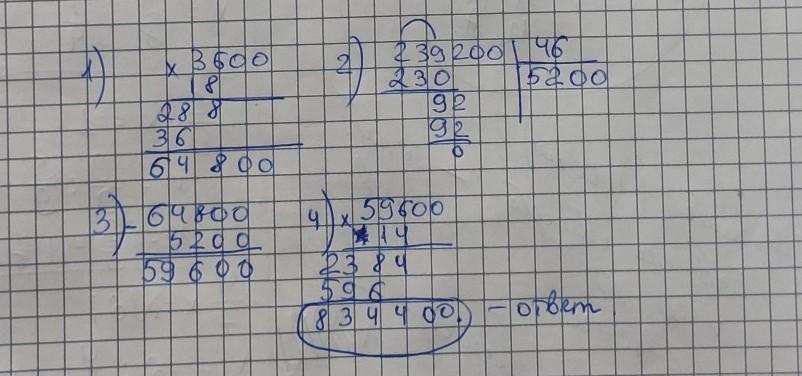 1) × 3600
18
288
36
64 800
2) 239200 | 46
230 | 5200
92
92
0
3) - 64800
5200
59600
4) × 59600
14
2384
596
834400. - ответ